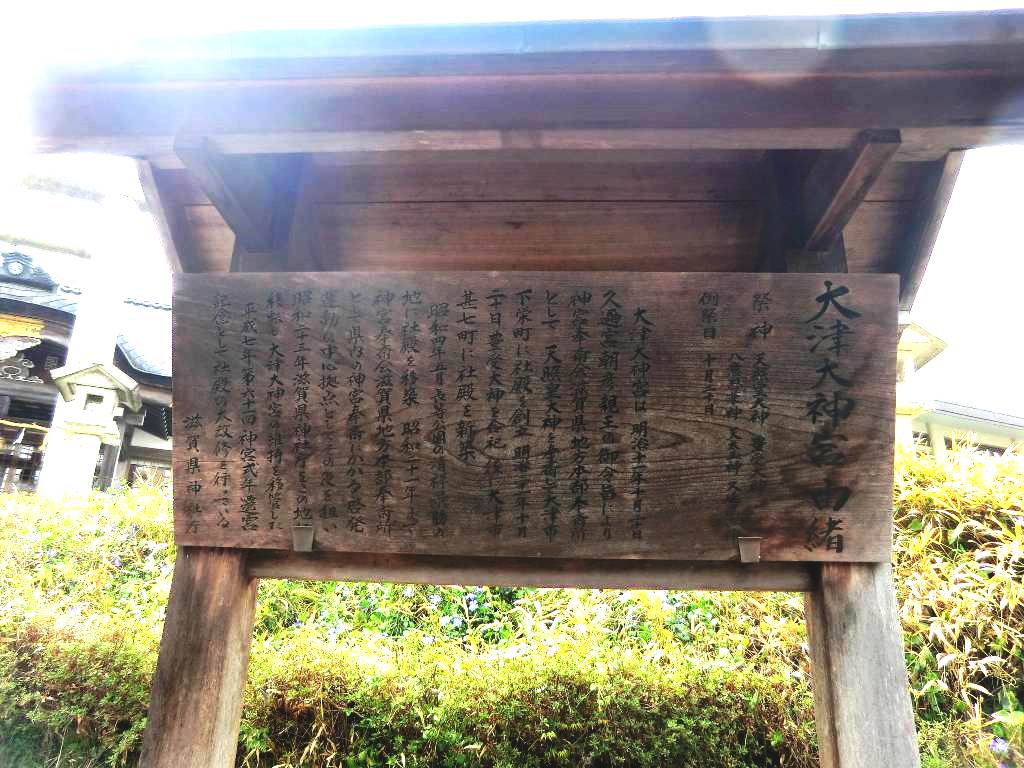 大津大神宮由緒
祭神 天照皇大神 豊受大神
例祭日 十月二十日
大津大神宮は 明治十二年十月十日
久邇宮朝彦親王の御令旨により
神宮奉斎会滋賀県地方本部奉斎所
として 天照皇大神を奉斎し大津市
下栄町に社殿を創立 明治三十年十月
二十日 豊受大神を合祀 後 大津市
其七町に社殿を新築
昭和四年五月 長等公園の清浄
地に社殿を移築 昭和二十一年まで
神宮奉斎会滋賀県地方本部奉斎所
とし 県内の神宮奉斎にかかる啓発
運動の中心拠点としてその役を担い
昭和二十三年滋賀県神社庁をこの地に
移転し 大津大神宮の維持を移管した
平成七年 第六十一回 神宮式年遷宮
記念として社殿の大改修を行っている
滋賀県神社庁